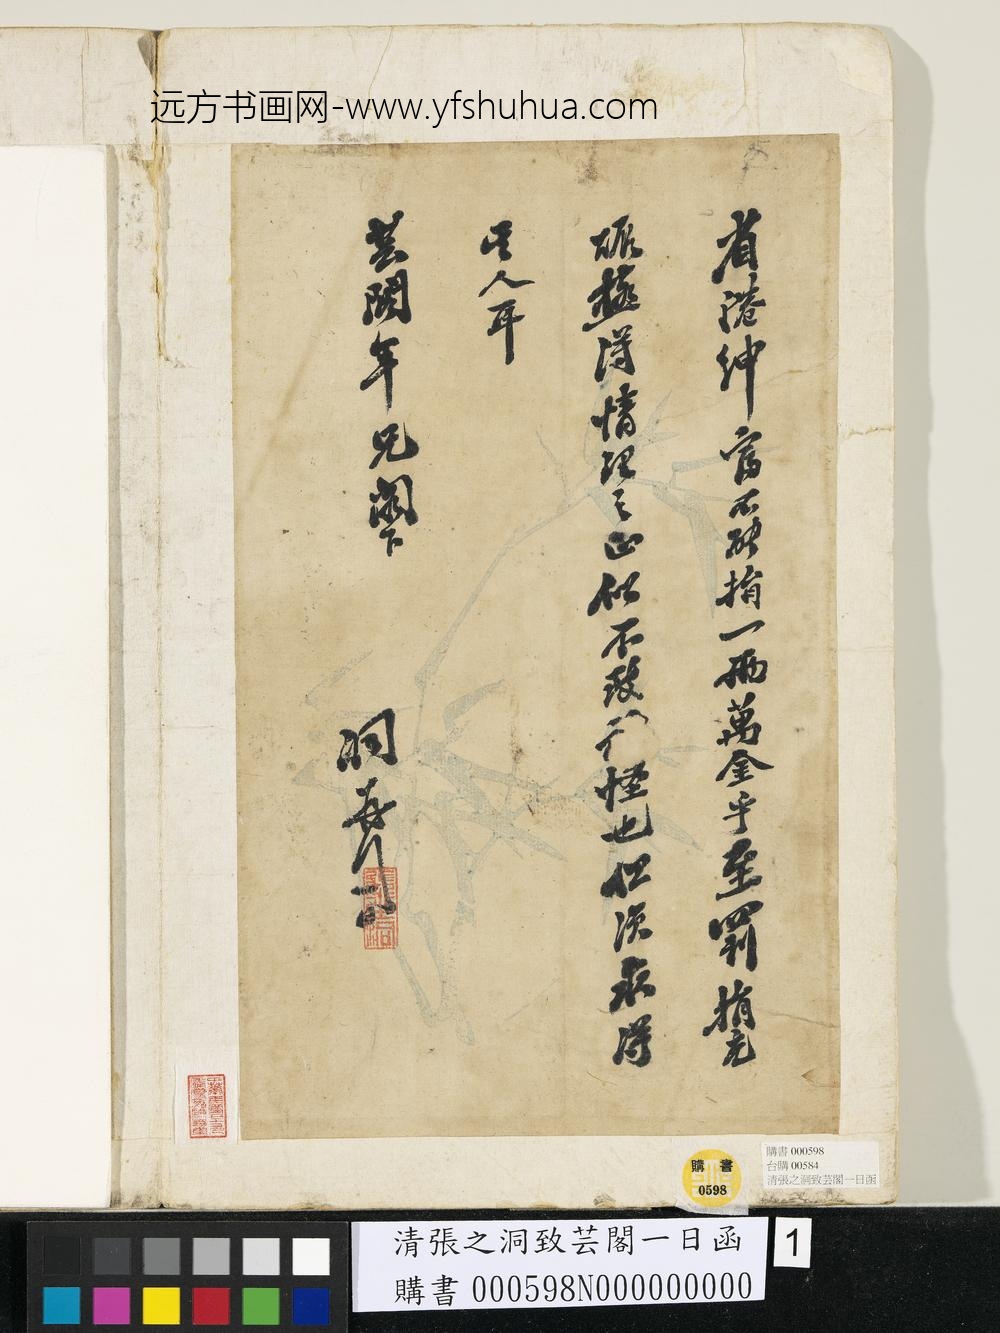 远方书画网-www.yfshuhua.com
省港紳富不能捐一兩萬金乎至罰捐充
極得情理之正似不致駭怪也但須求得
其人耳
芸閣年兄閣下
洞 壽
購書 000598
台購 00584
清張之洞致芸閣一日函
購書
0598
清張之洞致芸閣一日函
購書 000598N000000000
1